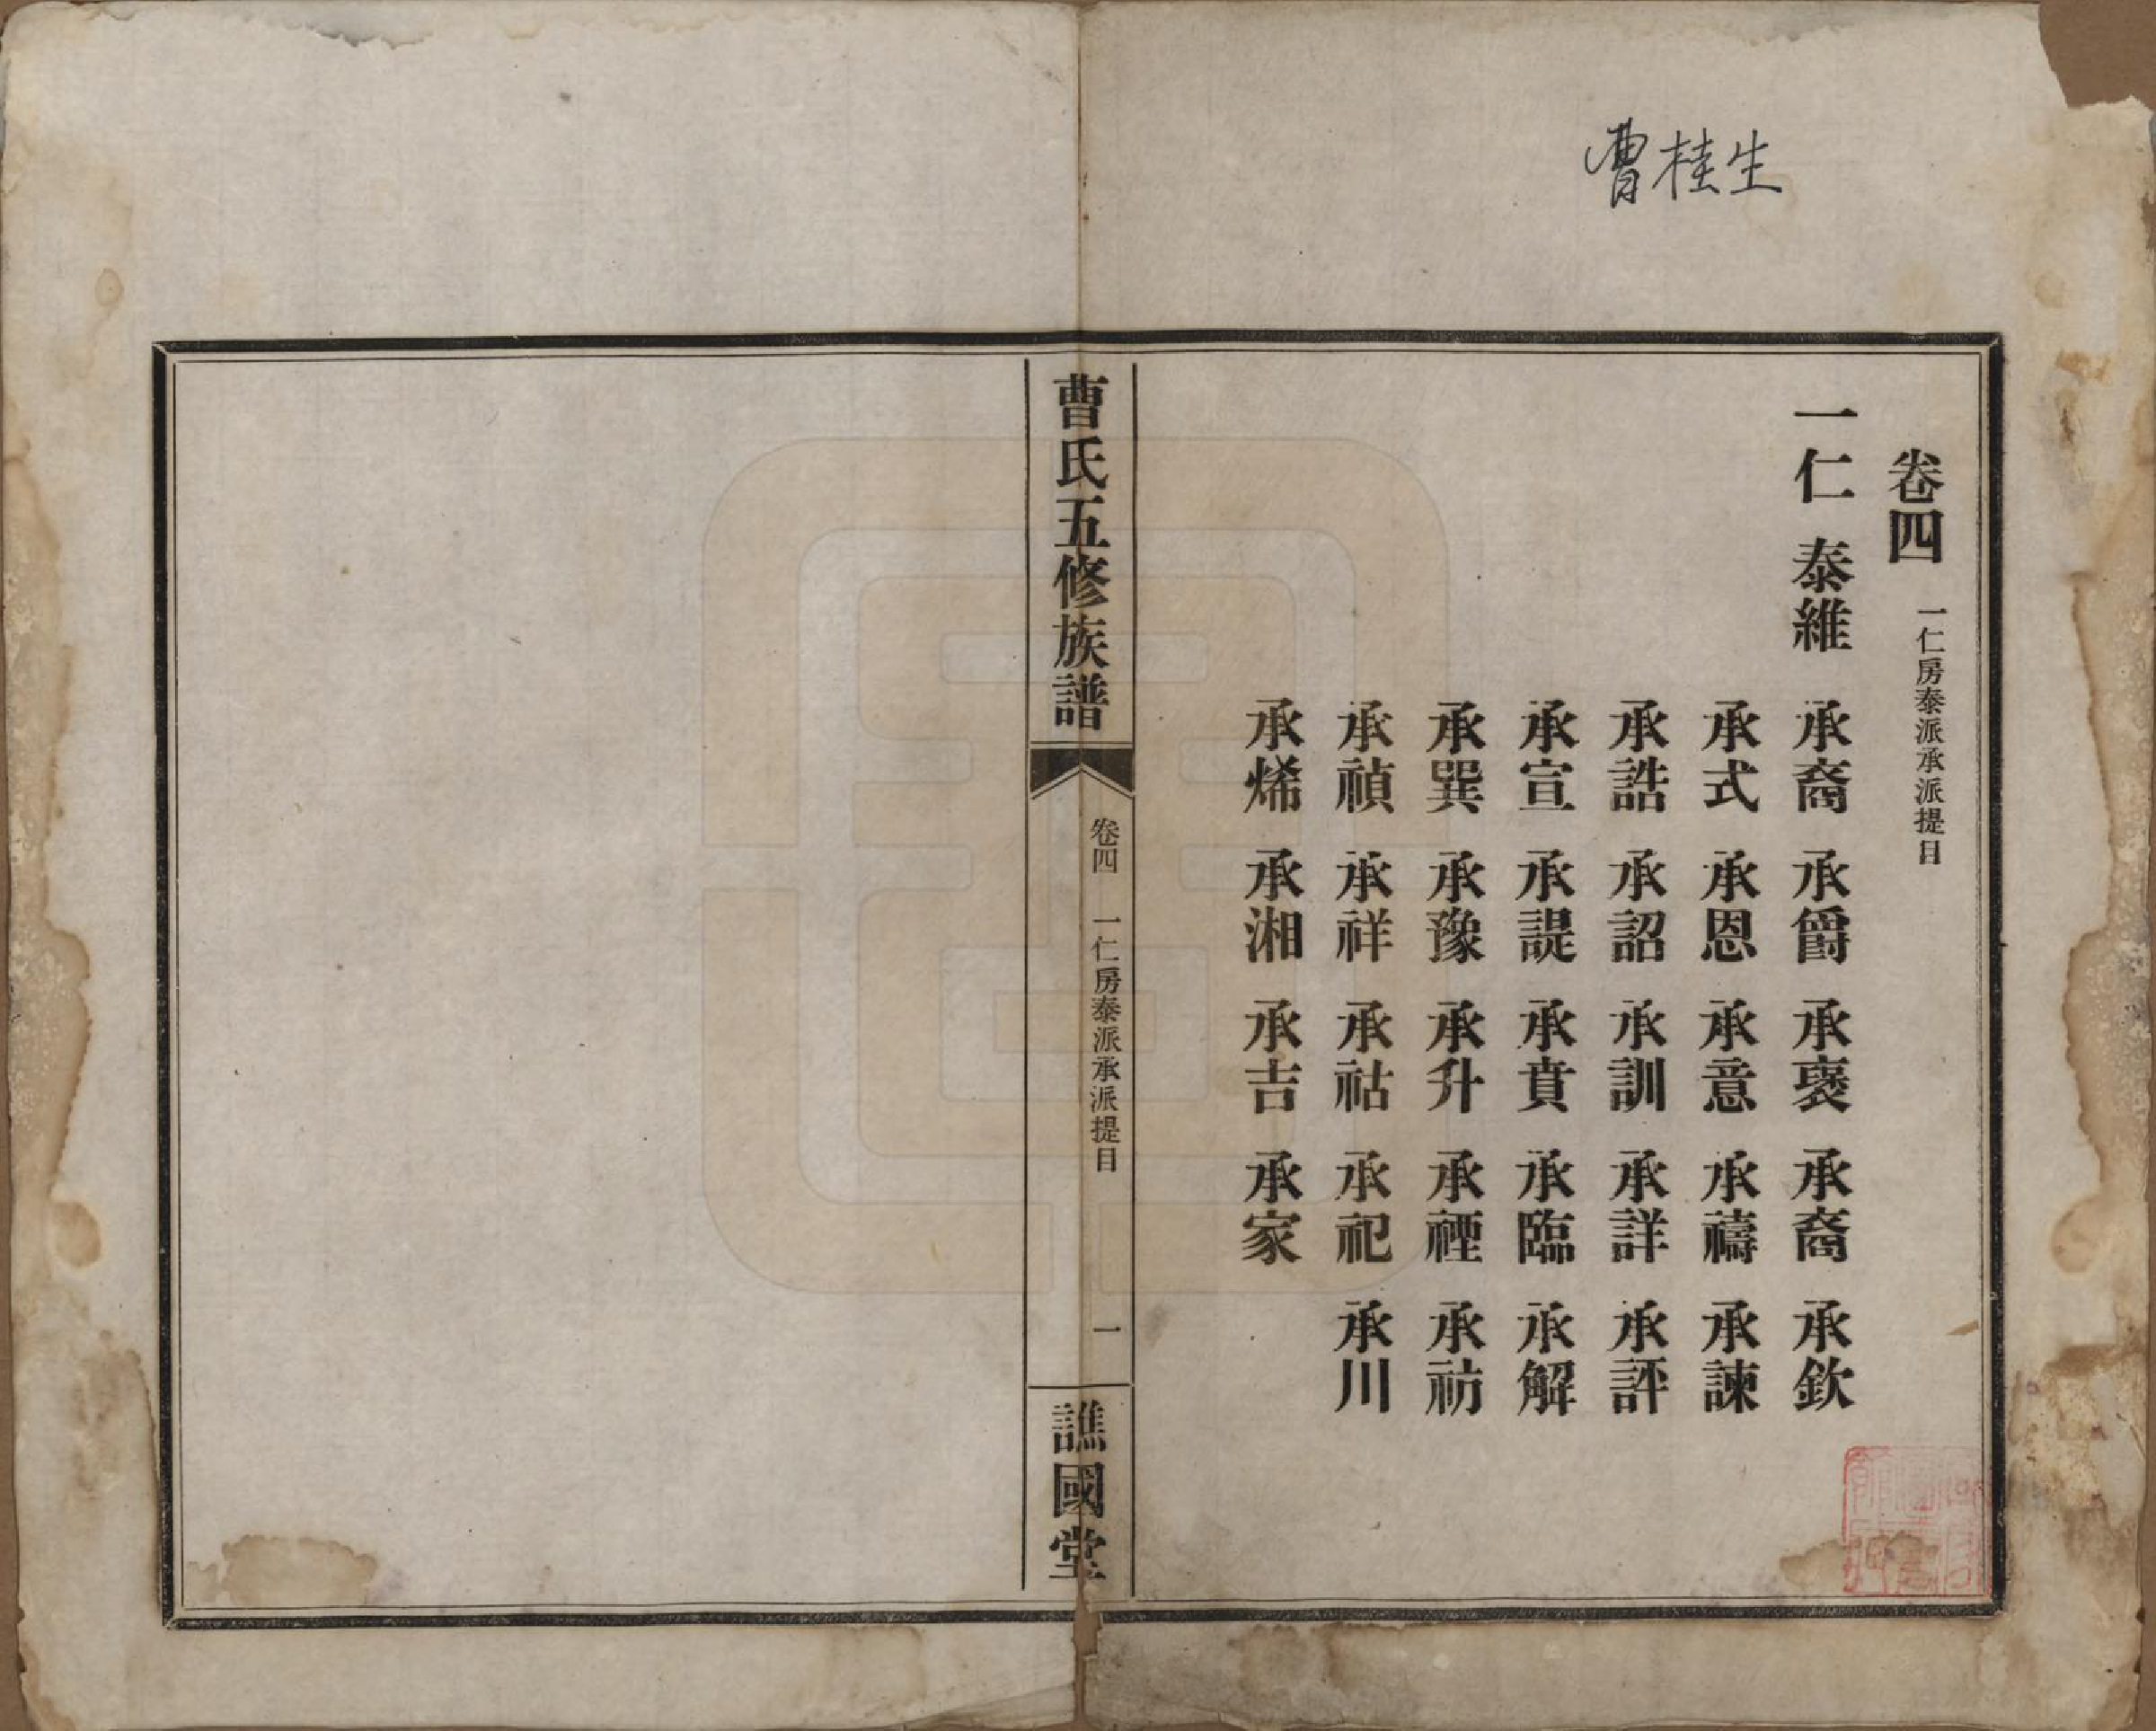 曹桂生
卷四 一仁房泰派承派提目
一仁 泰維 承裔 承爵 承褒 承裔 承欽
承式 承恩 承意 承禱 承諫
承誥 承詔 承訓 承詳 承評
承宣 承諟 承賁 承臨 承解
承巽 承豫 承升 承禋 承祊
承禎 承祥 承祜 承祀 承川
承烯 承湘 承吉 承家
曹氏五修族譜 卷四 一仁房泰派承派提目 一 譙國堂